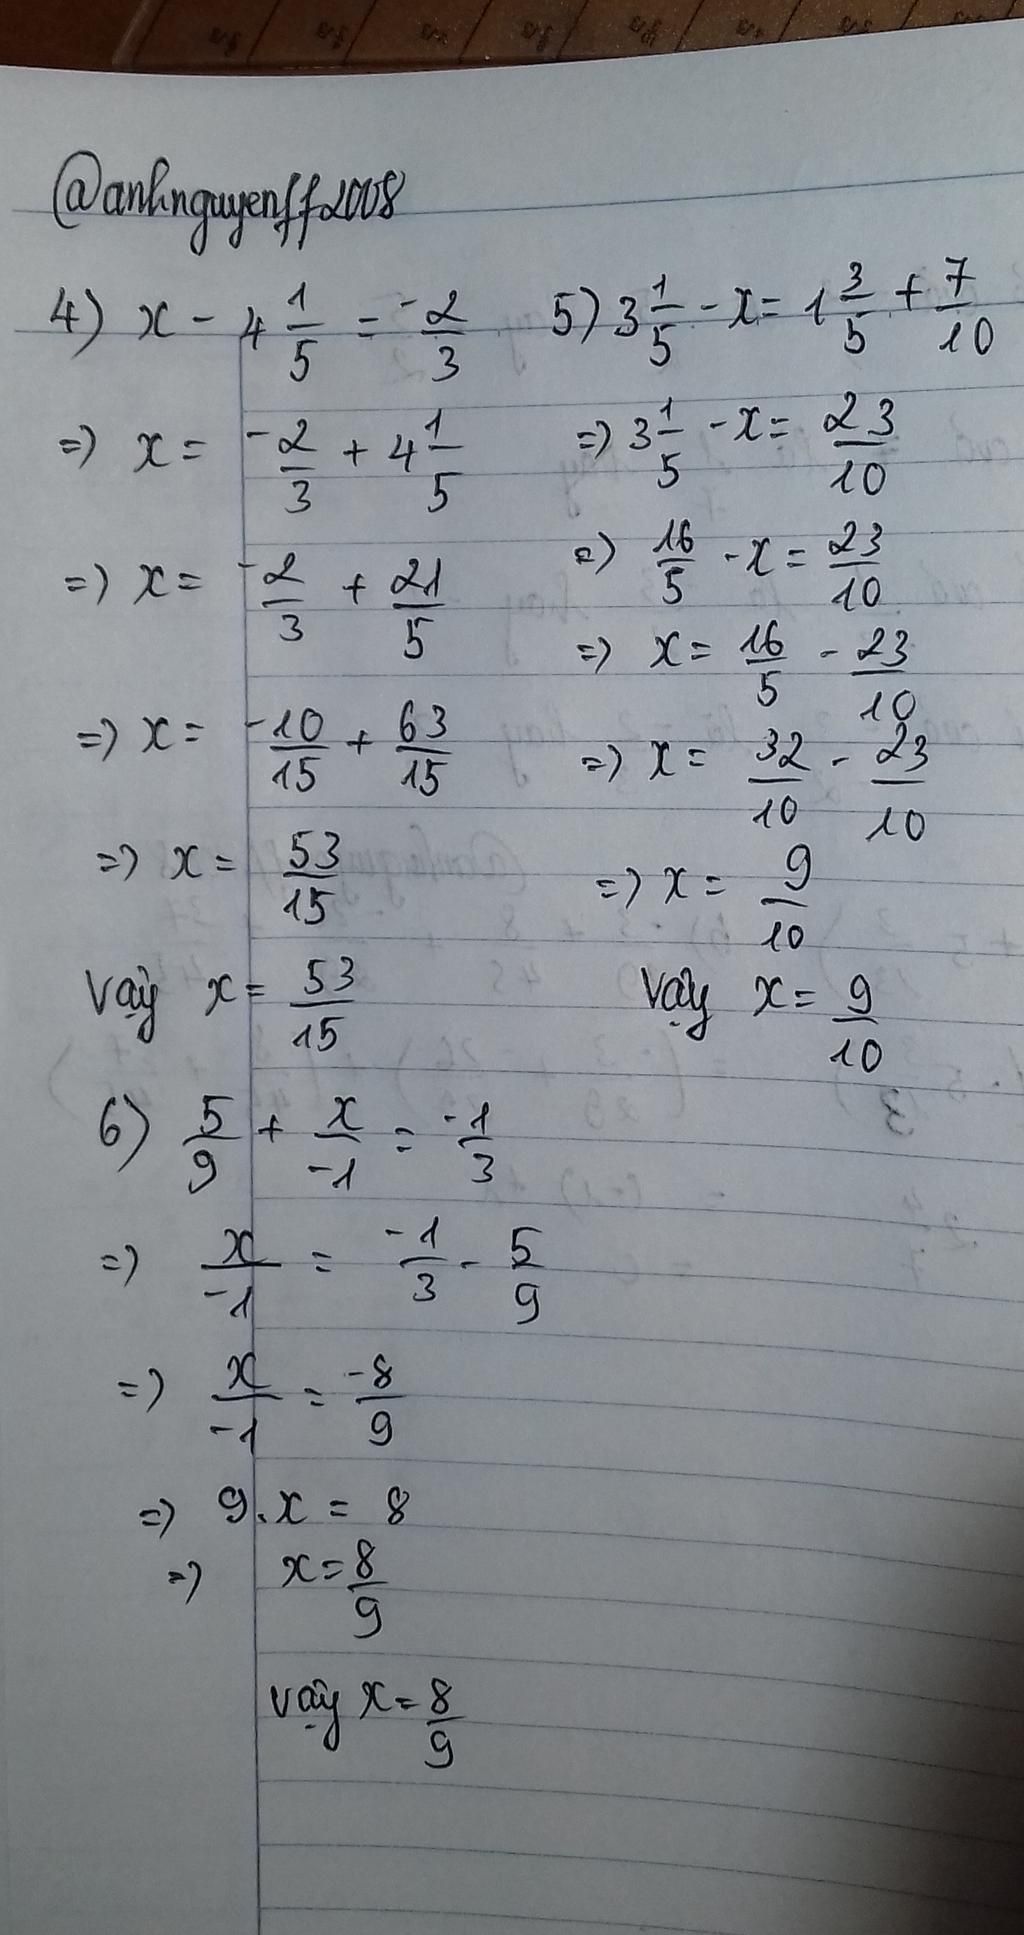 @anhnguyenff2008
4) x - 4 1/5 = -2/3
=> x = -2/3 + 4 1/5
=> x = -2/3 + 21/5
=> x = -10/15 + 63/15
=> x = 53/15
Vậy x = 53/15
5) 3 1/5 - x = 1 3/5 + 7/10
=> 3 1/5 - x = 23/10
=> 16/5 - x = 23/10
=> x = 16/5 - 23/10
=> x = 32/10 - 23/10
=> x = 9/10
Vậy x = 9/10
6) 5/9 + x/-1 = -1/3
=> x/-1 = -1/3 - 5/9
=> x/-1 = -8/9
=> 9.x = 8
=> x = 8/9
vậy x = 8/9